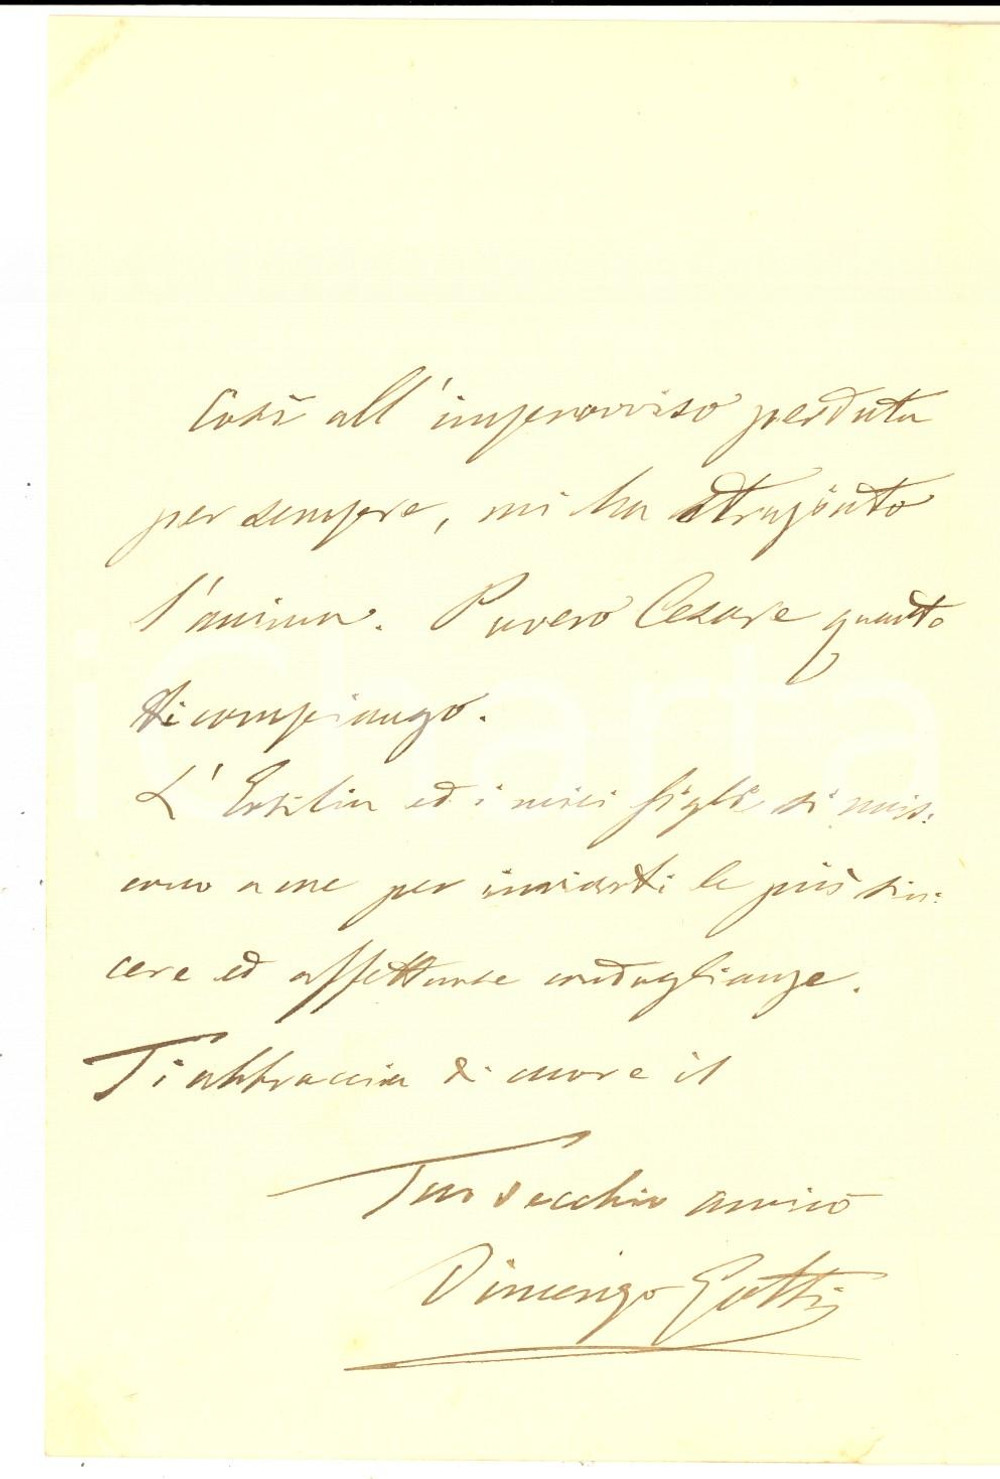 Così all'improvviso perduta
per sempre, mi ha straziato
l'anima. Povero Cesare quanto
ti compiango.
L'Ersilia ed i miei figli si unis:
cono a me per inviarti le più sin:
cere ed affettuose condoglianze.
Ti abbraccia di cuore il
Tuo vecchio amico
Vincenzo Gotti
iCharta